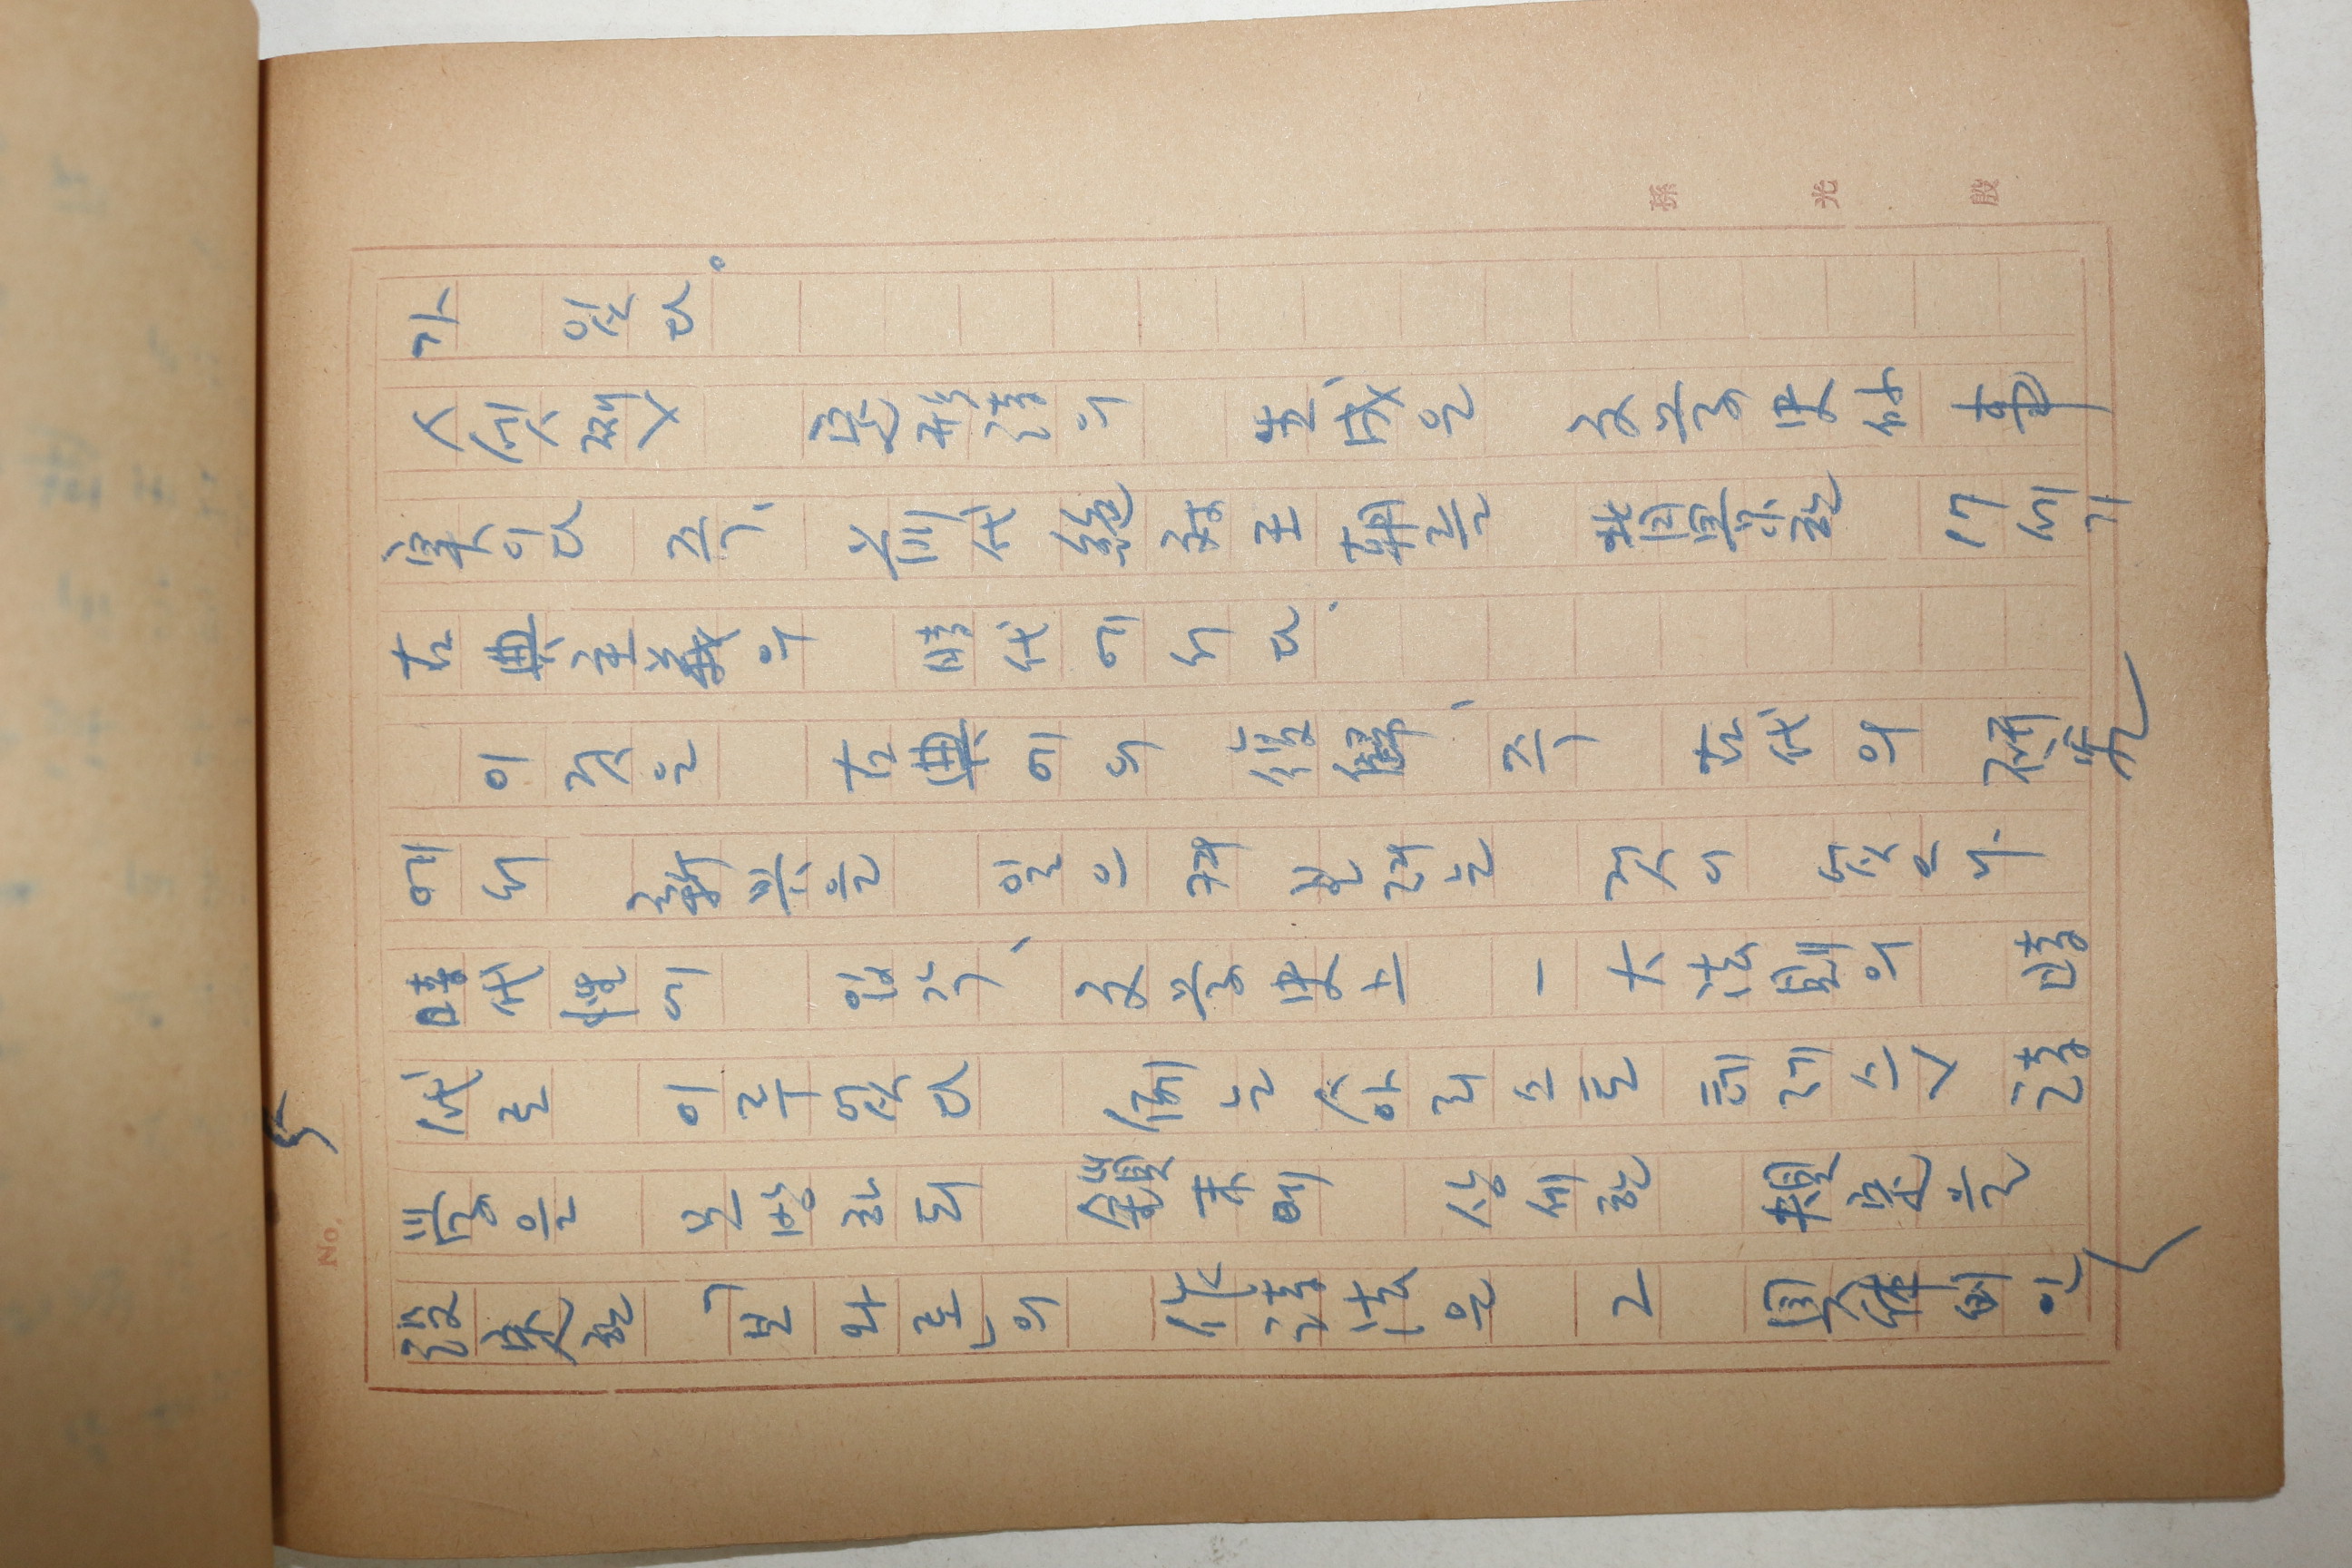 No. 5
가 있다。
<셋째> 定形詩의 生成은 文學史的 事
実이다 즉、 前代 絶対王朝를 17세기
古典主義의 時代에서다.
이것은 古典에의 復歸、 즉 古代의 研究
을 일으켜 본려는 것이 었으나.
時代性에 입각、 文學史上 一大法則의 時
代로 이루었다 例는 <아리스토테레스> 詩
學을 모방하되 상세한 規定을
設定한 「보와로」의 作詩法은 그 具体的인
孫光殷